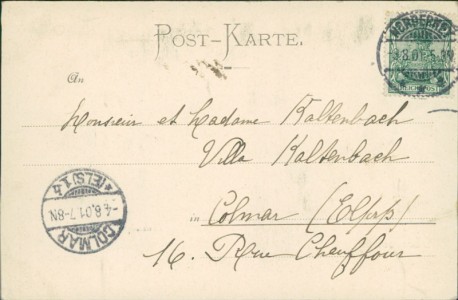 POST-KARTE.
NORDERNEY
3.8.01.5-
An
Monsieur et Madame Kaltenbach
Villa Kaltenbach
in Colmar (Elsass)
16. Rue Chauffour
COLMAR
-4.8.01.7-8N
*(ELS)1.*